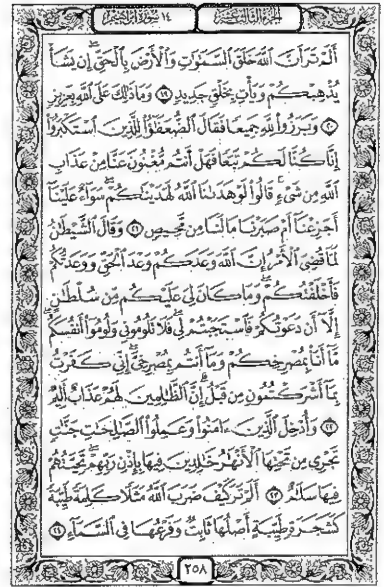 الجزء الثالث عشر
١٤ سورة إبراهيم
أَلَمْ تَرَ أَنَّ ٱللَّهَ خَلَقَ ٱلسَّمَٰوَٰتِ وَٱلْأَرْضَ بِٱلْحَقِّ ۚ إِن يَشَأْ
يُذْهِبْكُمْ وَيَأْتِ بِخَلْقٍ جَدِيدٍ ۝١٩ وَمَا ذَٰلِكَ عَلَى ٱللَّهِ بِعَزِيزٍ
۝٢٠ وَبَرَزُوا۟ لِلَّهِ جَمِيعًا فَقَالَ ٱلضُّعَفَٰٓؤُا۟ لِلَّذِينَ ٱسْتَكْبَرُوٓا۟
إِنَّا كُنَّا لَكُمْ تَبَعًا فَهَلْ أَنتُم مُّغْنُونَ عَنَّا مِنْ عَذَابِ
ٱللَّهِ مِن شَىْءٍ ۚ قَالُوا۟ لَوْ هَدَىٰنَا ٱللَّهُ لَهَدَيْنَٰكُمْ ۖ سَوَآءٌ عَلَيْنَآ
أَجَزِعْنَآ أَمْ صَبَرْنَا مَا لَنَا مِن مَّحِيصٍ ۝٢١ وَقَالَ ٱلشَّيْطَٰنُ
لَمَّا قُضِىَ ٱلْأَمْرُ إِنَّ ٱللَّهَ وَعَدَكُمْ وَعْدَ ٱلْحَقِّ وَوَعَدتُّكُمْ
فَأَخْلَفْتُكُمْ ۖ وَمَا كَانَ لِىَ عَلَيْكُم مِّن سُلْطَٰنٍ
إِلَّآ أَن دَعَوْتُكُمْ فَٱسْتَجَبْتُمْ لِى ۖ فَلَا تَلُومُونِى وَلُومُوٓا۟ أَنفُسَكُم ۖ
مَّآ أَنَا۠ بِمُصْرِخِكُمْ وَمَآ أَنتُم بِمُصْرِخِىَّ ۖ إِنِّى كَفَرْتُ
بِمَآ أَشْرَكْتُمُونِ مِن قَبْلُ ۗ إِنَّ ٱلظَّٰلِمِينَ لَهُمْ عَذَابٌ أَلِيمٌ
۝٢٢ وَأُدْخِلَ ٱلَّذِينَ ءَامَنُوا۟ وَعَمِلُوا۟ ٱلصَّٰلِحَٰتِ جَنَّٰتٍ
تَجْرِى مِن تَحْتِهَا ٱلْأَنْهَٰرُ خَٰلِدِينَ فِيهَا بِإِذْنِ رَبِّهِمْ ۖ تَحِيَّتُهُمْ
فِيهَا سَلَٰمٌ ۝٢٣ أَلَمْ تَرَ كَيْفَ ضَرَبَ ٱللَّهُ مَثَلًا كَلِمَةً طَيِّبَةً
كَشَجَرَةٍ طَيِّبَةٍ أَصْلُهَا ثَابِتٌ وَفَرْعُهَا فِى ٱلسَّمَآءِ ۝٢٤
٢٥٨